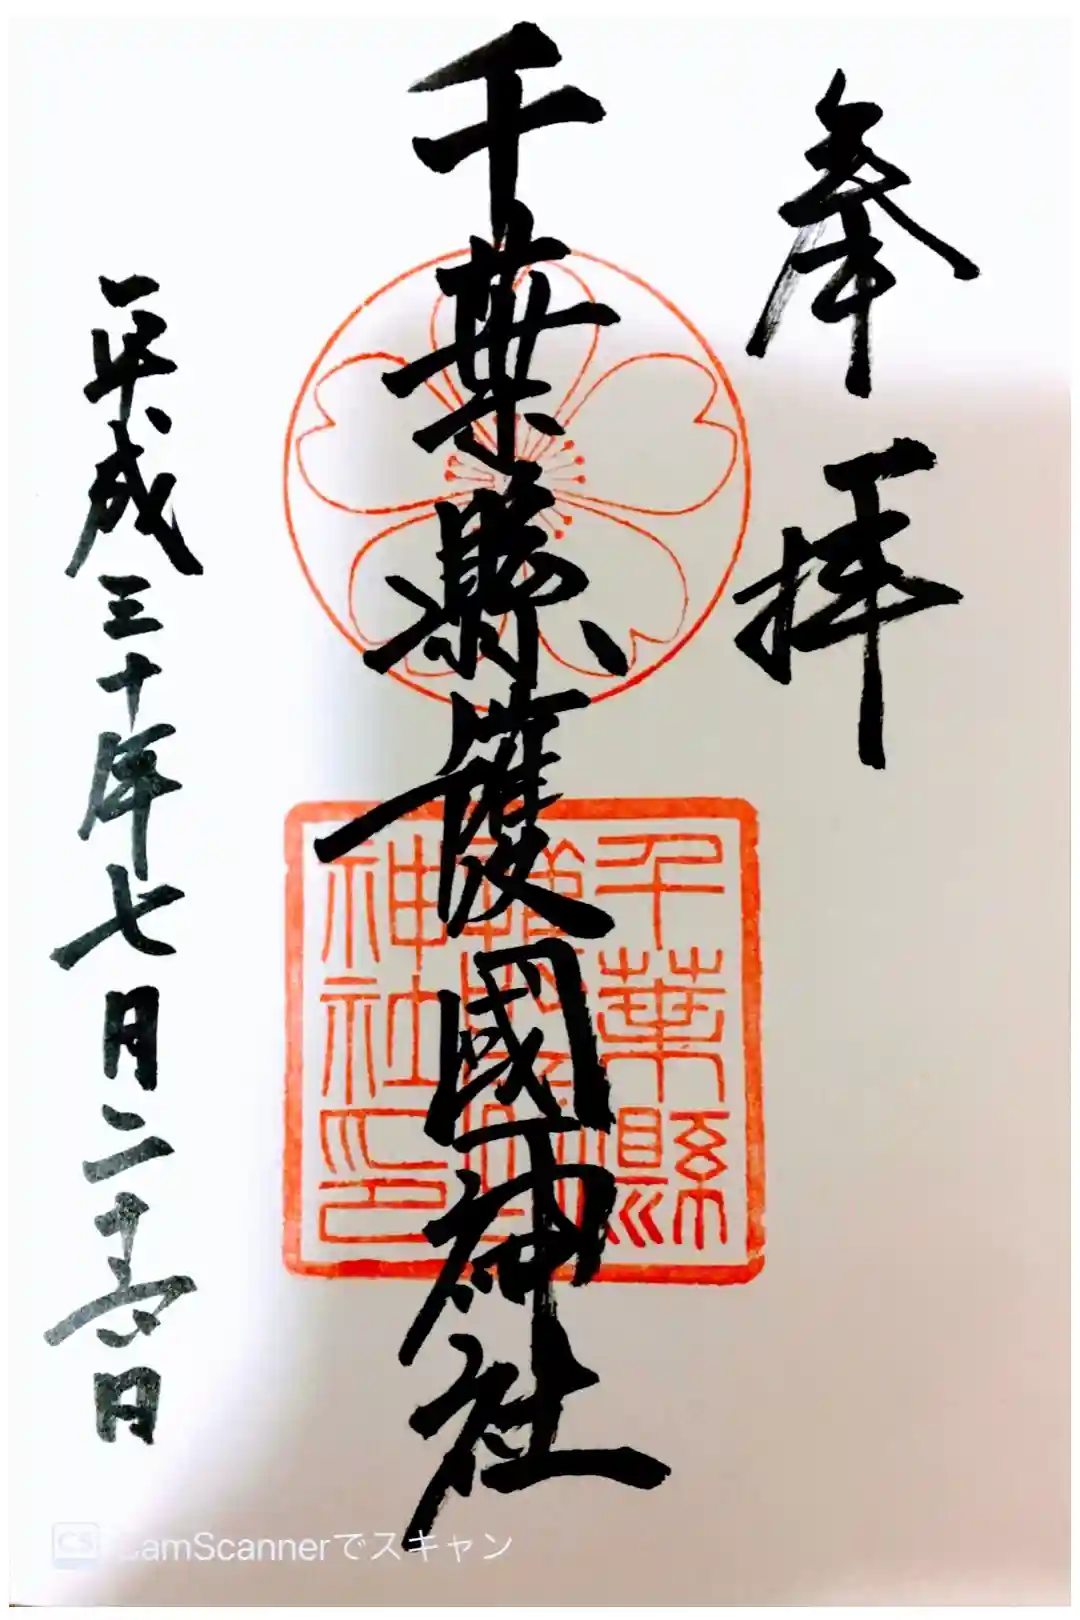 奉拝
千葉縣護國神社
千葉縣
神社印
平成三十年七月二十六日
CS CamScannerでスキャン